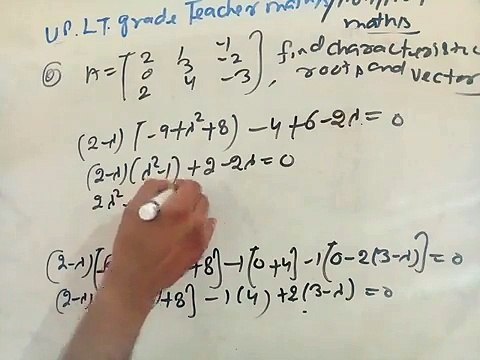 UP. L.T. grade Teacher maths
maths
Q A = [2 1 -1 0 3 -2 2 4 -3], find characteristic
roots and vector
(2-λ) [-9+λ²+8) -4+6-2λ = 0
(2-λ) (λ²-1) +2-2λ = 0
2λ²-
(2-λ) [ +8] -1[0+4] -1[0-2(3-λ)] = 0
(2-λ) +8] -1(4) +2(3-λ) = 0